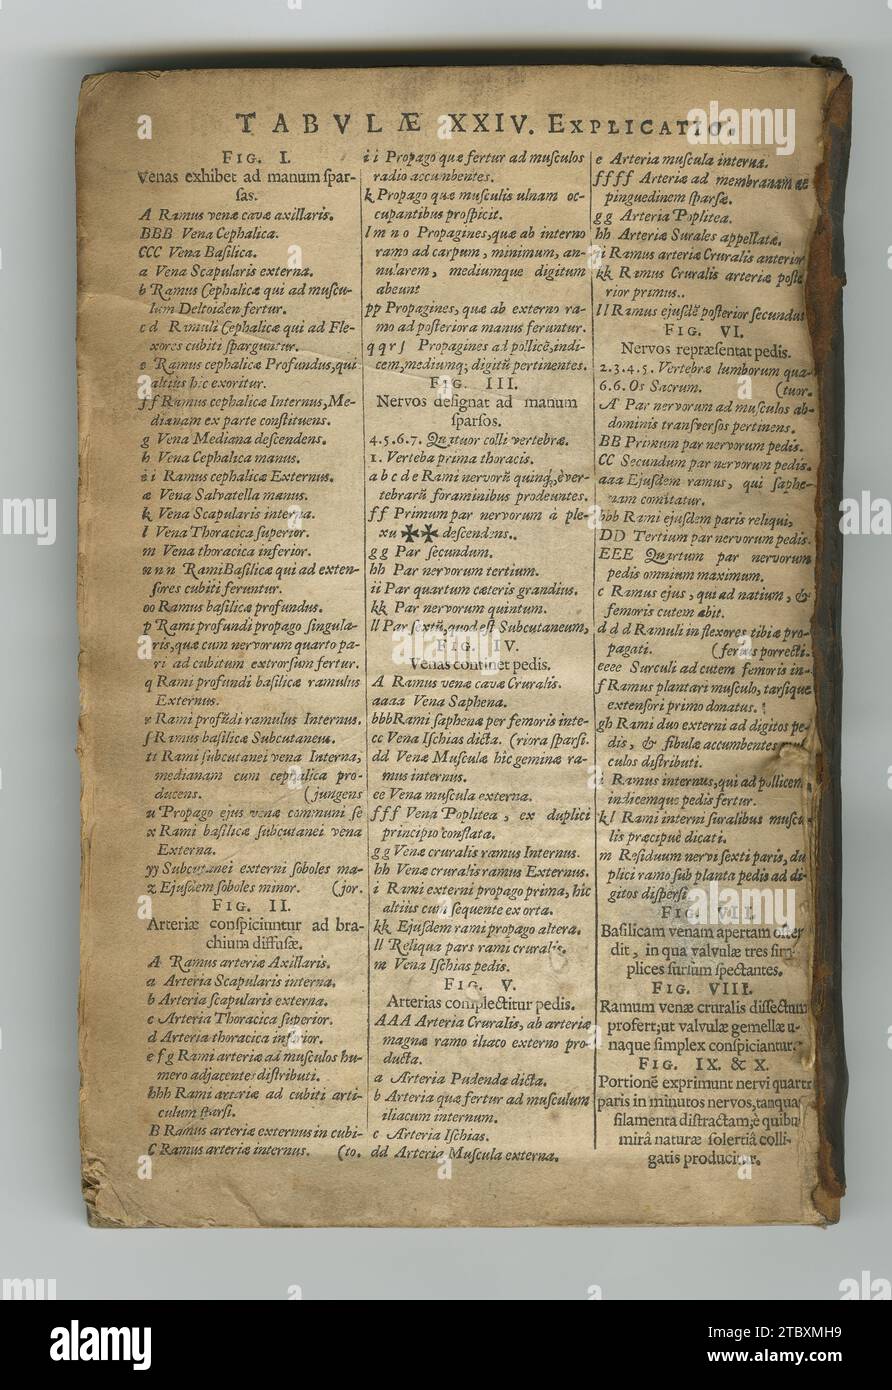 TABVLÆ XXIV. EXPLICATIO.
FIG. I.
Venas exhibet ad manum ſpar-
ſas.
A Ramus venæ cavæ axillaris.
BBB Vena Cephalica.
CCC Vena Baſilica.
a Vena Scapularis externa.
b Ramus Cephalicæ qui ad muſcu-
lum Deltoiden fertur.
c d Ramuli Cephalicæ qui ad Fle-
xores cubiti ſparguntur.
e Ramus cephalicæ Profundus, qui
altius hic exoritur.
ff Ramus cephalicæ Internus, Me-
dianam ex parte conſtituens.
g Vena Mediana deſcendens.
h Vena Cephalica manus.
i i Ramus cephalicæ Externus.
æ Vena Salvatella manus.
k Vena Scapularis interna.
l Vena Thoracica ſuperior.
m Vena thoracica inferior.
n n n Rami Baſilicæ qui ad exten-
ſores cubiti feruntur.
oo Ramus baſilicæ profundus.
p Rami profundi propago ſingula-
ris, quæ cum nervorum quarto pa-
ri ad cubitum extrorſum fertur.
q Rami profundi baſilicæ ramulus
Externus.
r Rami profũdi ramulus Internus.
ſ Ramus baſilicæ Subcutaneus.
tt Rami ſubcutanei vena Interna,
medianam cum cephalica pro-
ducens. (jungens
u Propago ejus venæ communi ſe
x Rami baſilicæ ſubcutanei vena
Externa.
yy Subcutanei externi ſoboles ma-
z Ejuſdem ſoboles minor. (jor.
FIG. II.
Arteriæ conſpiciuntur ad bra-
chium diffuſæ.
A Ramus arteriæ Axillaris.
a Arteria Scapularis interna.
b Arteria ſcapularis externa.
c Arteria Thoracica ſuperior.
d Arteria thoracica inferior.
e f g Rami arteriæ ad muſculos hu-
mero adjacentes diſtributi.
hhh Rami arteriæ ad cubiti arti-
culum ſparſi.
B Ramus arteriæ externus in cubi-
C Ramus arteriæ internus. (to.
i i Propago quæ fertur ad muſculos
radio accumbentes.
k Propago quæ muſculis ulnam oc-
cupantibus proſpicit.
l m n o Propagines, quæ ab interno
ramo ad carpum, minimum, an-
nularem, mediumque digitum
abeunt
pp Propagines, quæ ab externo ra-
mo ad poſteriora manus feruntur.
q q r ſ Propagines ad pollicẽ, indi-
cem, mediumq; digitũ pertinentes.
FIG. III.
Nervos deſignat ad manum
ſparſos.
4.5.6.7. Quatuor colli vertebræ.
1. Verteba prima thoracis.
a b c d e Rami nervorũ quinq, è ver-
tebrarũ foraminibus prodeuntes.
ff Primum par nervorum à ple-
xu ✠✠ deſcendens..
g g Par ſecundum.
hh Par nervorum tertium.
ii Par quartum cæteris grandius.
kk Par nervorum quintum.
ll Par ſextũ, quod eſt Subcutaneum,
FIG. IV.
Venas continet pedis.
A Ramus venæ cavæ Cruralis.
aaaa Vena Saphena.
bbb Rami ſaphenæ per femoris inte-
cc Vena Iſchias dicta. (riora ſparſi.
dd Vena Muſculæ hic geminæ ra-
mus internus.
ee Vena muſcula externa.
fff Vena Poplitea, ex duplici
principio conflata.
g g Venæ cruralis ramus Internus.
hh Venæ cruralis ramus Externus.
i Rami externi propago prima, hic
altius cum ſequente ex orta.
kk Ejuſdem rami propago altera.
ll Reliqua pars rami cruralis.
m Vena Iſchias pedis.
FIG. V.
Arterias complectitur pedis.
AAA Arteria Cruralis, ab arteriæ
magnæ ramo iliaco externo pro-
ducta.
a Arteria Pudenda dicta.
b Arteria quæ fertur ad muſculum
iliacum internum.
c Arteria Iſchias.
dd Arteria Muſcula externa.
e Arteria muſcula interna.
ffff Arteriæ ad membranam &
pinguedinem ſparſæ.
g g Arteria Poplitea.
hh Arteriæ Surales appellatæ.
ii Ramus arteriæ Cruralis anterior
kk Ramus Cruralis arteriæ poſte
rior primus..
ll Ramus ejuſdẽ poſterior ſecundus
FIG. VI.
Nervos repræſentat pedis.
2.3.4.5. Vertebræ lumborum qua-
6.6. Os Sacrum. (tuor.
A Par nervorum ad muſculos ab-
dominis tranſverſos pertinens.
BB Primum par nervorum pedis.
CC Secundum par nervorum pedis.
aaa Ejuſdem ramus, qui ſaphe-
nam comitatur.
bbb Rami ejuſdem paris reliqui,
DD Tertium par nervorum pedis.
EEE Quartum par nervorum
pedis omnium maximum.
c Ramus ejus, qui ad natium, &
femoris cutem abit.
d d d Ramuli in flexores tibiæ pro-
pagati. (ferius porrecti.
eeee Surculi ad cutem femoris in-
f Ramus plantari muſculo, tarſique
extenſori primo donatus.
gh Rami duo externi ad digitos pe-
dis, & fibulæ accumbentes muſ
culos diſtributi.
i Ramus internus, qui ad pollicem,
indicemque pedis fertur.
kl Rami interni ſuralibus muſcu
lis præcipuè dicati.
m Reſiduum nervi ſexti paris, du
plici ramo ſub planta pedis ad di-
gitos diſperſi
FIG. VII.
Baſilicam venam apertam oſten
dit, in qua valvulæ tres ſim-
plices ſurſum ſpectantes.
FIG. VIII.
Ramum venæ cruralis diſſectum
profert; ut valvulæ gemellæ u-
naque ſimplex conſpiciantur.
FIG. IX. & X.
Portionẽ exprimunt nervi quarti
paris in minutos nervos, tanquã
filamenta diſtractam; è quibus
mirâ naturæ ſolertiâ colli-
gatis producitur.
alamy
Image ID: 2TBXMH9
www.alamy.com